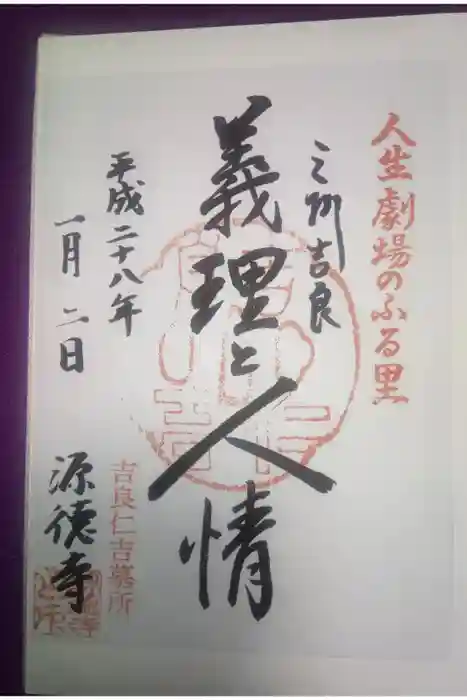 人生劇場のふる里
三州吉良
義理と人情
平成二十八年
一月二日
吉良仁吉墓所
源徳寺